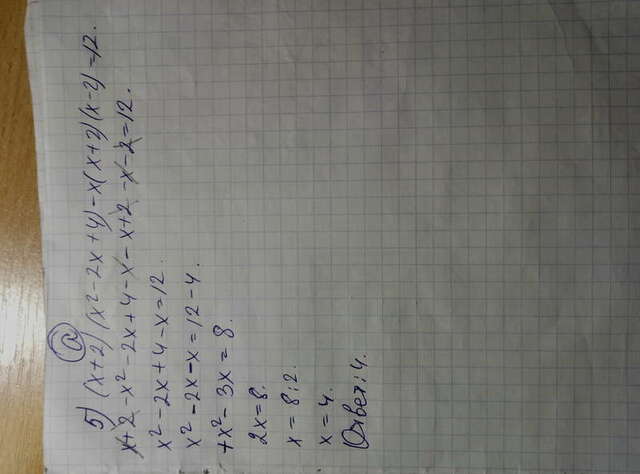 а
5) (x+2)(x²-2x+4)-x(x+2)(x-2)=12.
x+2-x²-2x+4-x-x+2-x-2=12.
x²-2x+4-x=12.
x²-2x-x=12-4.
+x²-3x=8.
2x=8.
x=8:2.
x=4.
Ответ: 4.